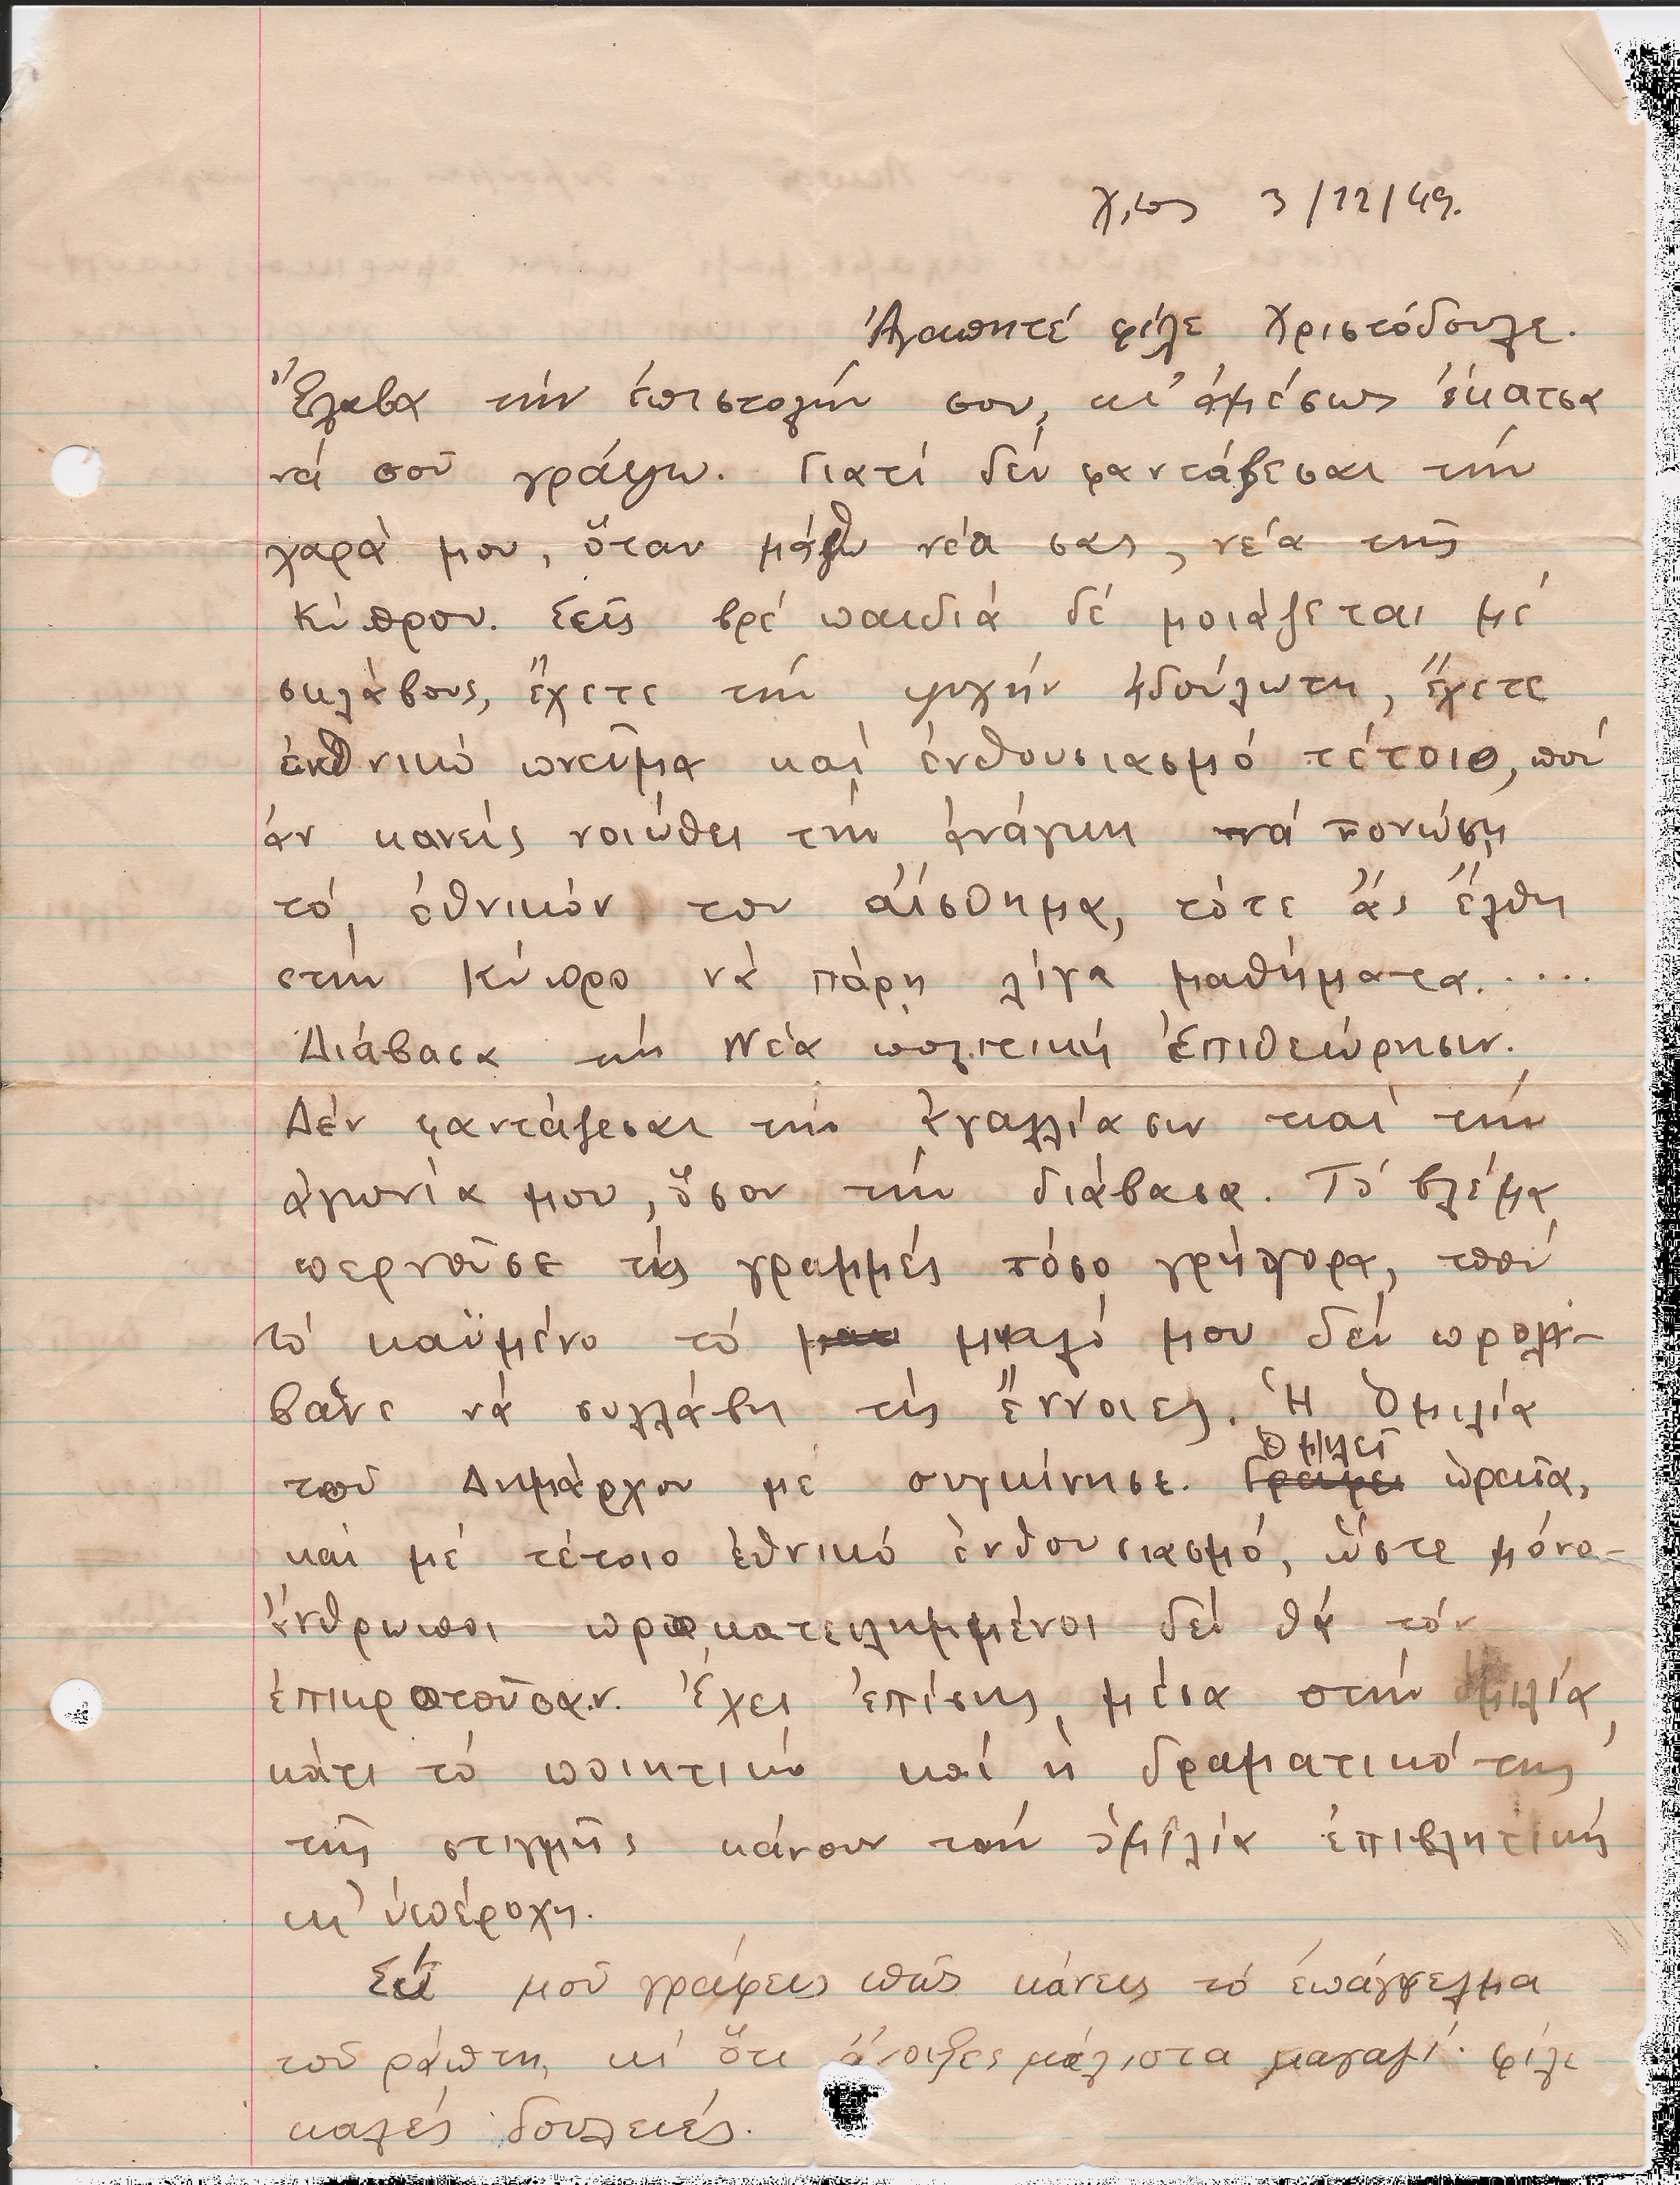 Χίος 3/12/49.
Ἀγαπητέ φίλε Χριστόδουλε.
Ἔλαβα τήν ἐπιστολήν σου, κι' ἀμέσως ἔκατσα
νά σοῦ γράψω. Γιατί δέν φαντάζεσαι τήν
χαρά μου, ὅταν μάθω νέα σας, νέα τῆς
Κύπρου. Σεῖς βρέ παιδιά δέ μοιάζεται μέ
σκλάβους, ἔχετε τήν ψυχήν ἀδούλωτη, ἔχετε
ἐθνικό πνεῦμα καί ἐνθουσιασμό τέτοιο, πού
ἄν κανείς νοιώθει τήν ἀνάγκη νά τονώση
τό ἐθνικόν του αἴσθημα, τότε ἄς ἔλθη
στήν Κύπρο νά πάρη λίγα μαθήματα.....
Διάβασα τήν Νέα πολιτική Ἐπιθεώρησιν.
Δέν φαντάζεσαι τήν ἀγαλλίασιν καί τήν
ἀγωνία μου, ὅσον τήν διάβασα. Τό βλέμα
περνοῦσε τίς γραμμές τόσο γρήγορα, πού
τό καϋμένο τό μυαλό μου δέν προλά-
βαινε νά συλλάβη τίς ἔννοιες. Ἡ Ὁμιλία
τοῦ Δημάρχου μέ συγκίνησε. Ὁμιλεῖ ὡραῖα,
καί μέ τέτοιο ἐθνικό ἐνθουσιασμό, ὥστε μόνο
ἄνθρωποι προκατειλημμένοι δέν θά τόν
ἐπικροτοῦσαν. Ἔχει ἐπίσης μέσα στήν ὁμιλία
κάτι τό ποιητικό καί ἡ δραματικότης
τῆς στιγμῆς κάνουν τήν ὁμιλία ἐπιβλητική
κι' ὑπέροχη.
Σύ μοῦ γράφεις πῶς κάνεις τό ἐπάγγελμα
τοῦ ράπτη, κι ὅτι ἄνοιξες μάλιστα μαγαζί. φίλε
καλές δουλειές.